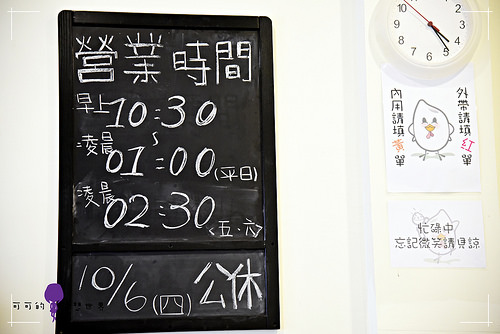 營業時間
早上10:30
~
凌晨01:00(平日)
凌晨02:30(五、六)
10/6(四)公休
10
2
9
3
8
4
7
6
5
外帶請填紅單
內用請填黃單
忙碌中
忘記微笑請見諒
可可的
世界